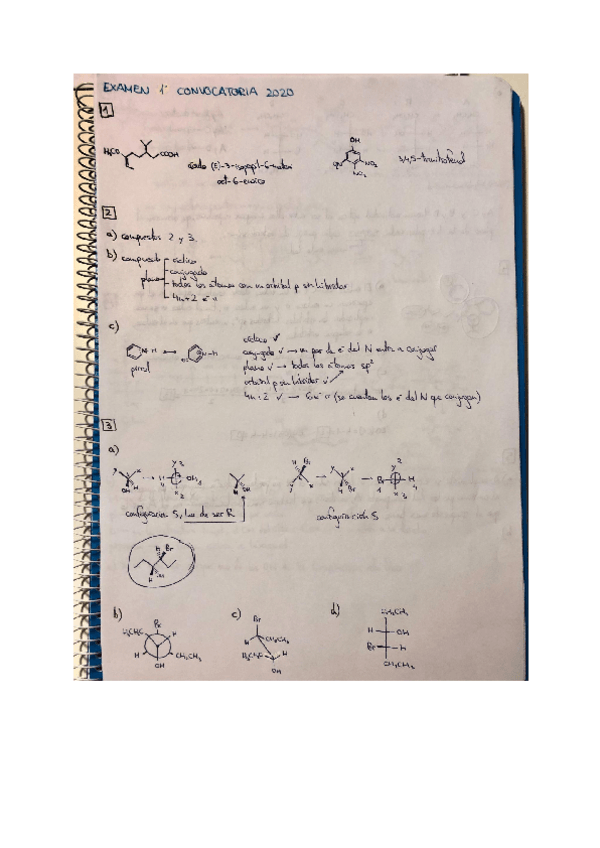 EXAMEN 1ª CONVOCATORIA 2020
1
H₃CO COOH
ácido (E)-3-isopropil-6-metoxi
oct-6-enoico
OH
O₂N NO₂
NO₂
3,4,5-trinitrofenol
2
a) compuestos 2 y 3.
b) compuesto cíclico
plano conjugado
todos los átomos con un orbital p sin hibridar
4n+2 e⁻ π
c)
N-H N-H
pirrol
cíclico ✓
conjugado ✓ → un par de e⁻ del N entra a conjugar
plano ✓ → todos los átomos sp²
orbital p sin hibridar ✓
4n+2 ✓ → 6 e⁻ π (se cuentan los e⁻ del N que conjugan)
3
a)
configuración S, ha de ser R
configuración S
b) c) d)
Br
H₃CH₂C
H H
CH₂CH₃
OH
Br
H CH₂CH₃
H
OH
CH₂CH₃
H OH
Br H
CH₂CH₃